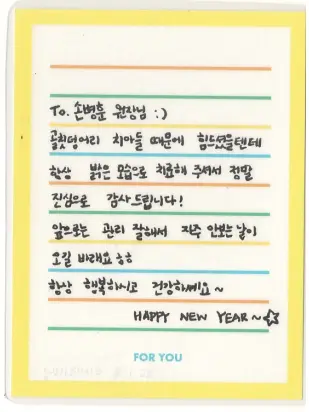 To. 손병훈 원장님 :)
골칫덩어리 치아들 때문에 힘드셨을텐데
항상 밝은 모습으로 치료해 주셔서 정말
진심으로 감사드립니다!
앞으로는 관리 잘해서 자주 안보는 날이
오길 바래요 ㅎㅎ
항상 행복하시고 건강하세요~
HAPPY NEW YEAR~☆
FOR YOU